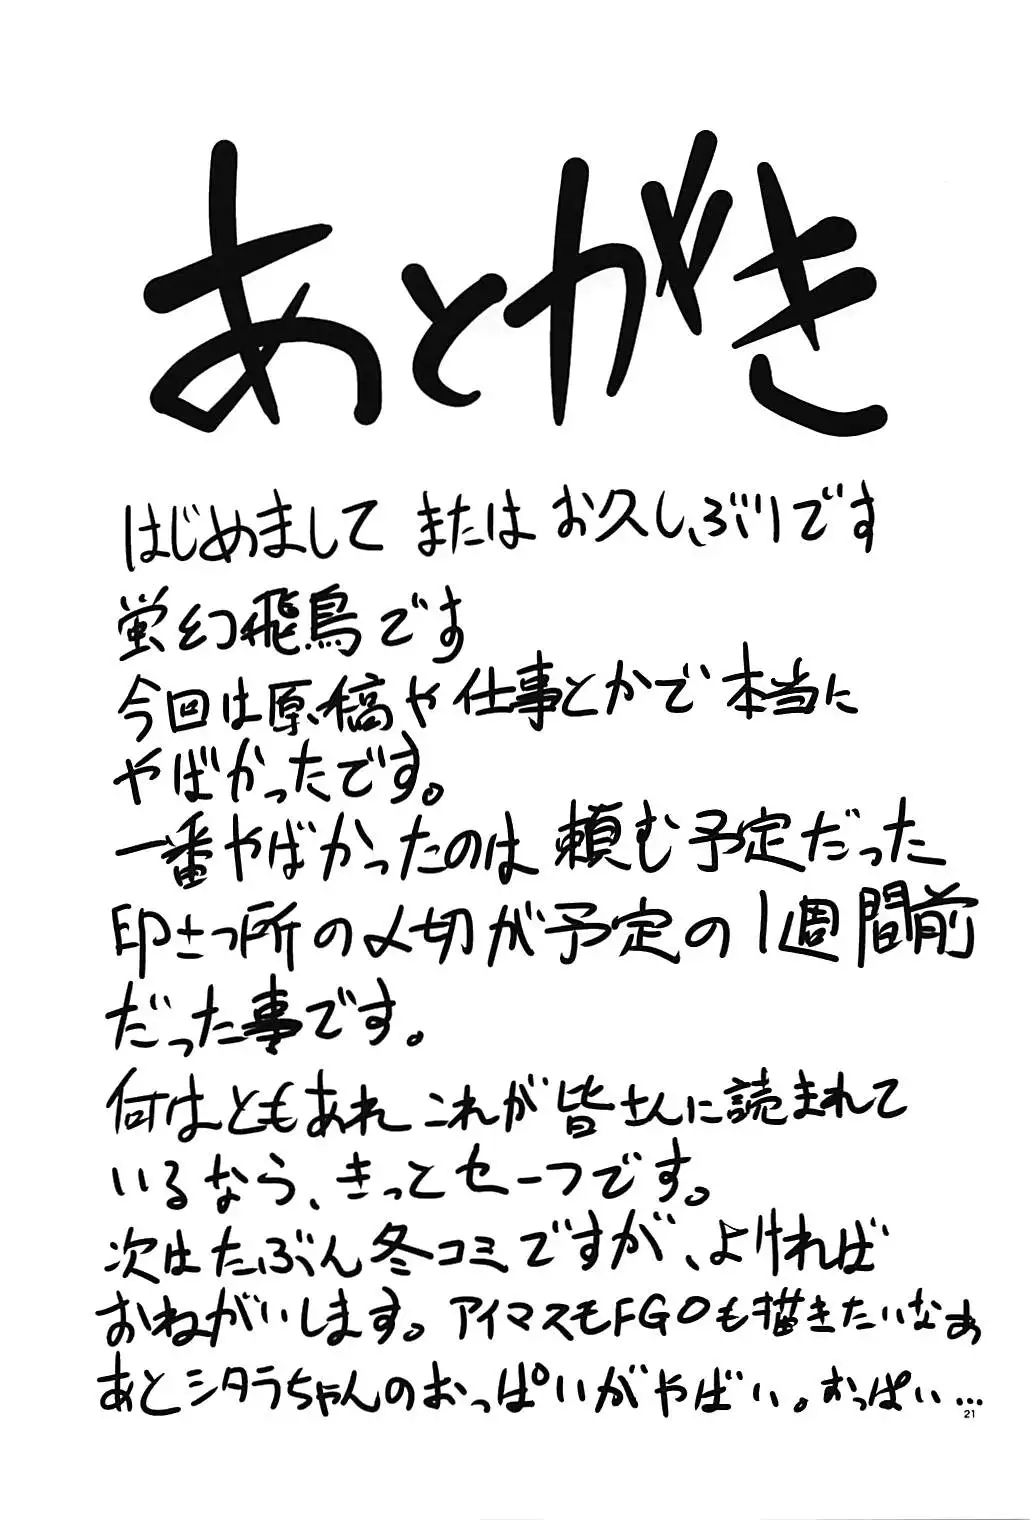 あとがき
はじめまして または お久しぶりです
蛍幻飛鳥です
今回は原稿や仕事とかで本当に
やばかったです。
一番やばかったのは頼む予定だった
印さつ所の〆切が予定の1週間前
だった事です。
何はともあれ これが皆さんに読まれて
いるなら、きっとセーフです。
次はたぶん冬コミですが、よければ
おねがいします。アイマスモFGOも描きたいなぁ
あとシタラちゃんのおっぱいがやばい。おっぱい…
21